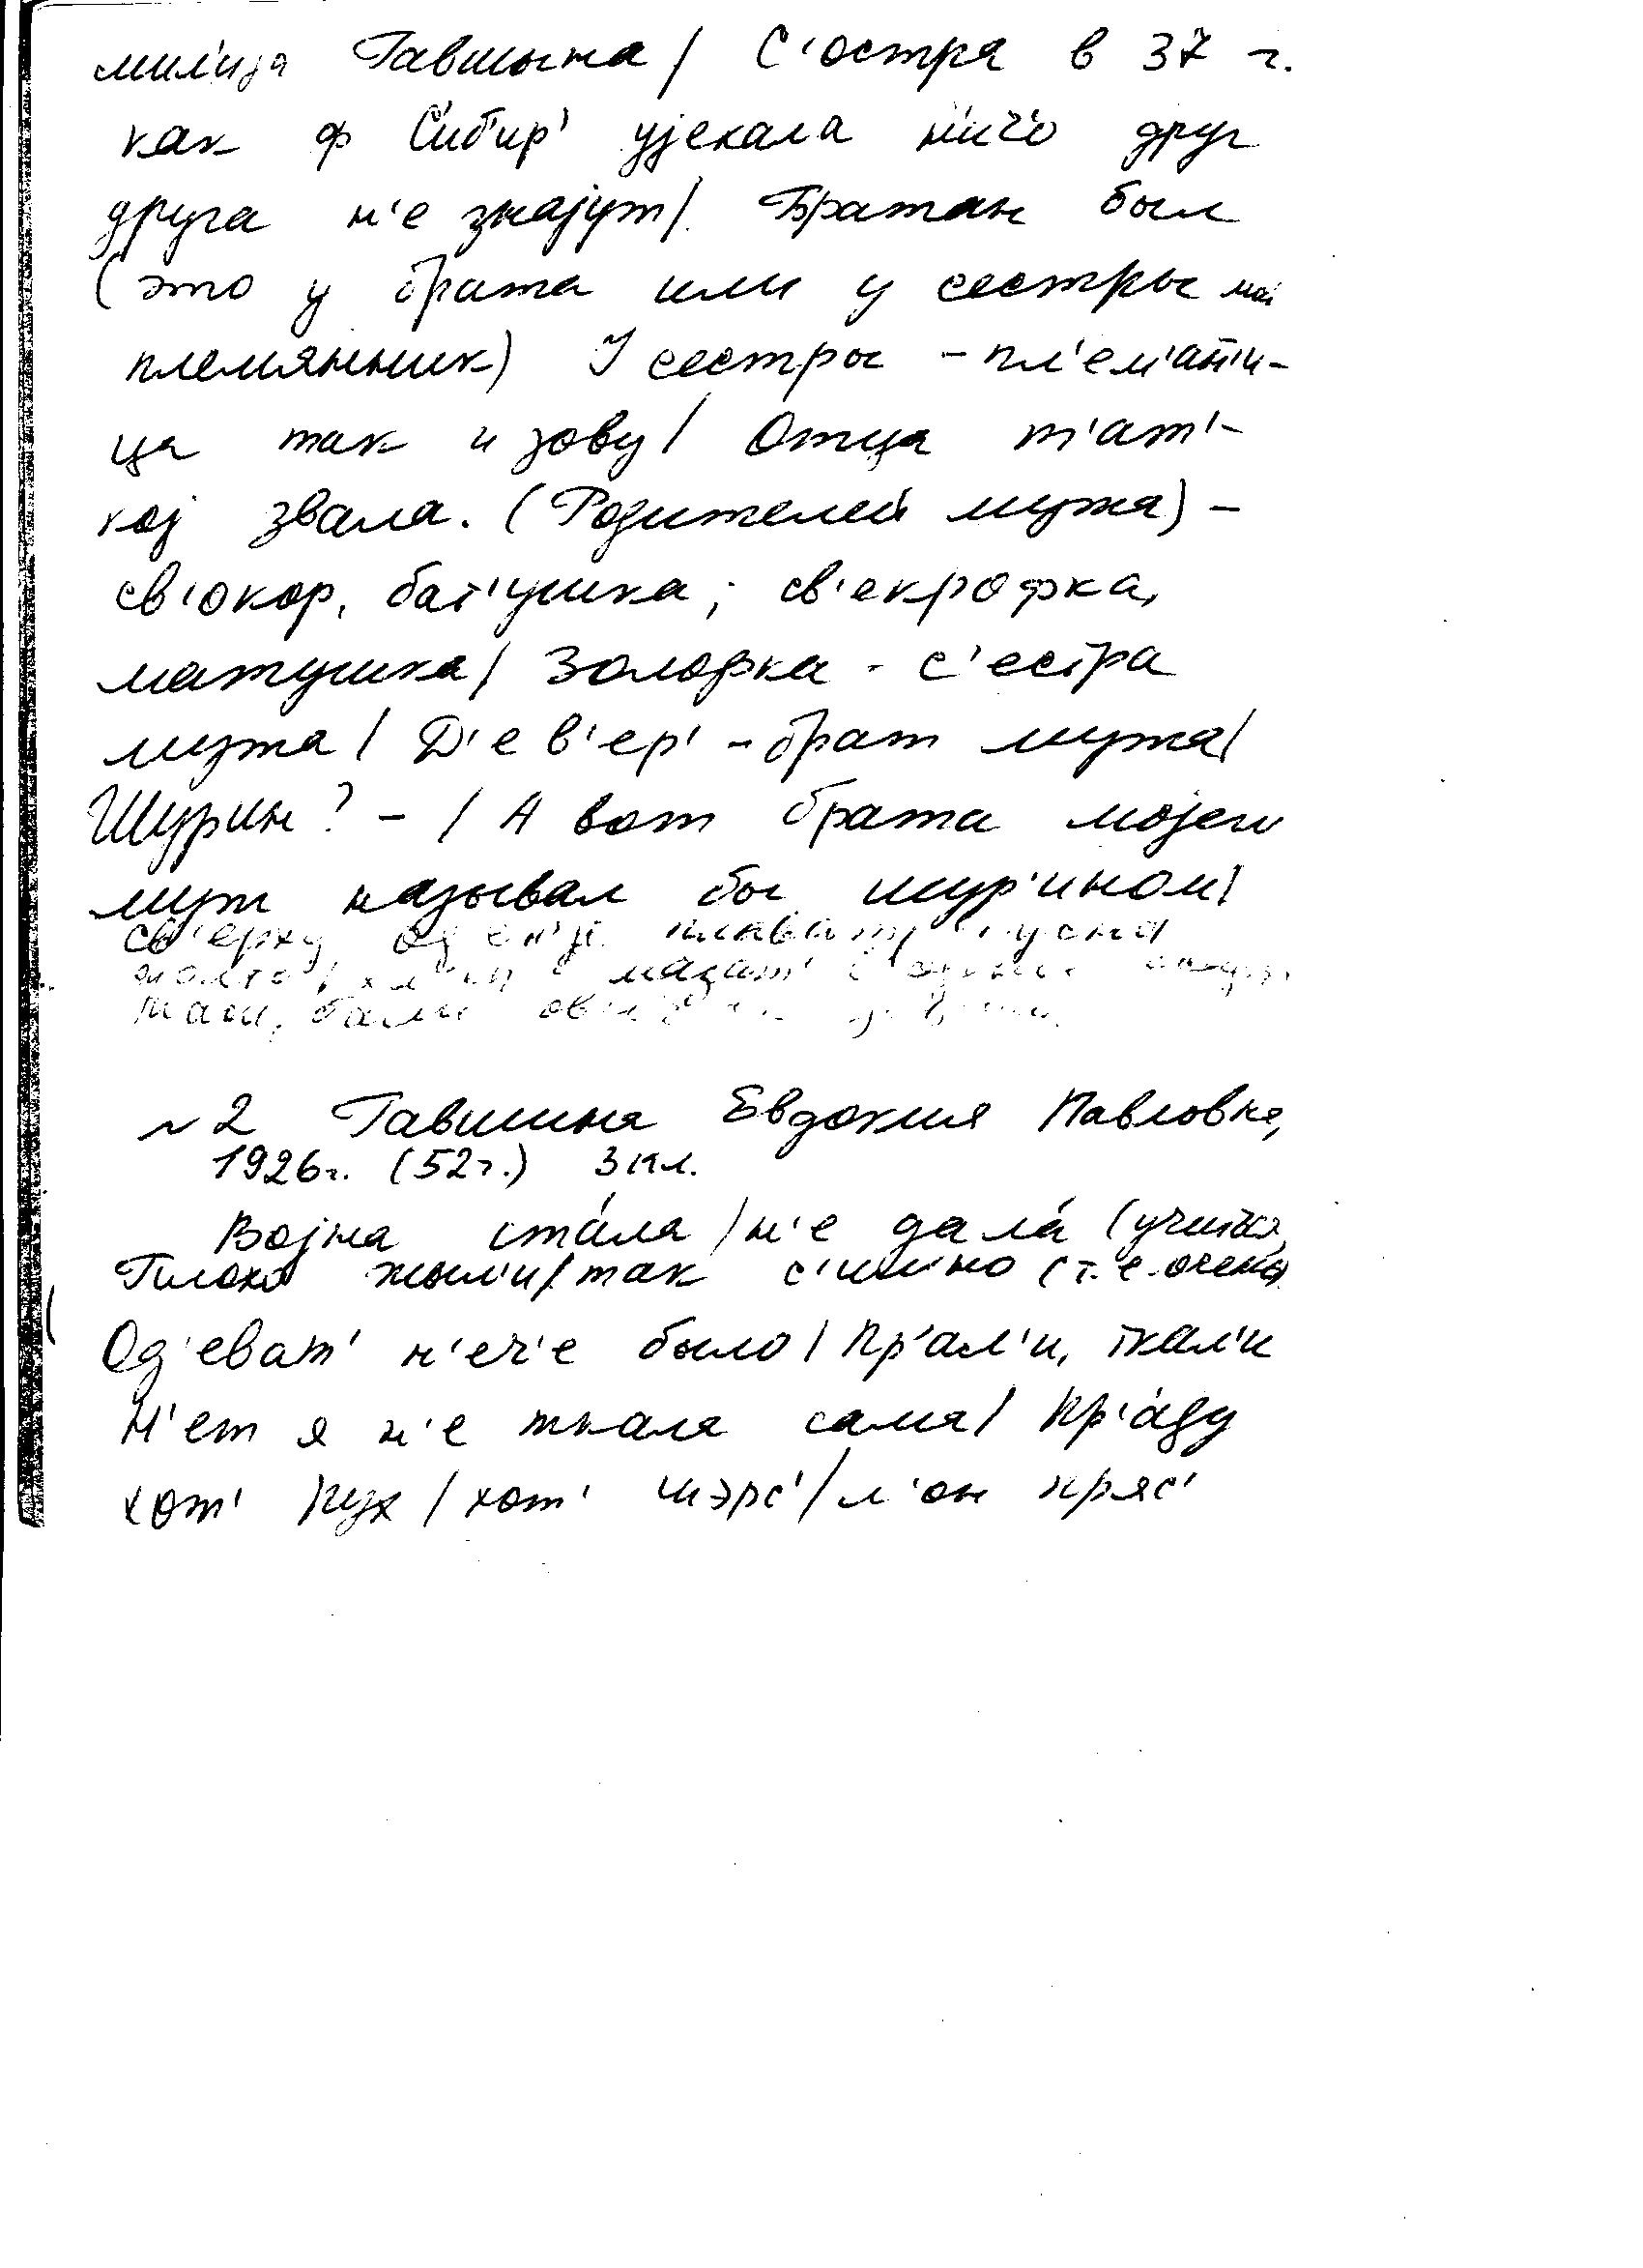 мил'иjа Гавшына / С'остра в 37 г.
как ф С'иб'ир' уjехала н'ич'о друг
друга н'е знаjут /. Братан был
(это у брата или у сестры мой
племянник) У сестры - пл'ем'ан'и-
ца так и зову / Отца т'ат'-
коj звала. (Родителей мужа) -
св'окор, бат'ушка; св'екрофка,
матушка / Золофка - с'естра
мужа / Д'ев'ер' - брат мужа /
Шурин? - / А вот брата моjего
муж называл бы шур'ином /
св'ерху
мазат'
№ 2 Гавшина Евдокия Павловна,
1926г. (52г.) 3 кл.
Воjна ста́ла / н'е дала́ (учитьс
Плохо жыл'и / так с'ил'но (т.е. очень)
Од'еват' н'еч'е было / Пр'ал'и, ткал'и
Н'ет я н'е ткала сама / Пр'а́ду
хот' пух / хот' шэрс' / л'он пряс'